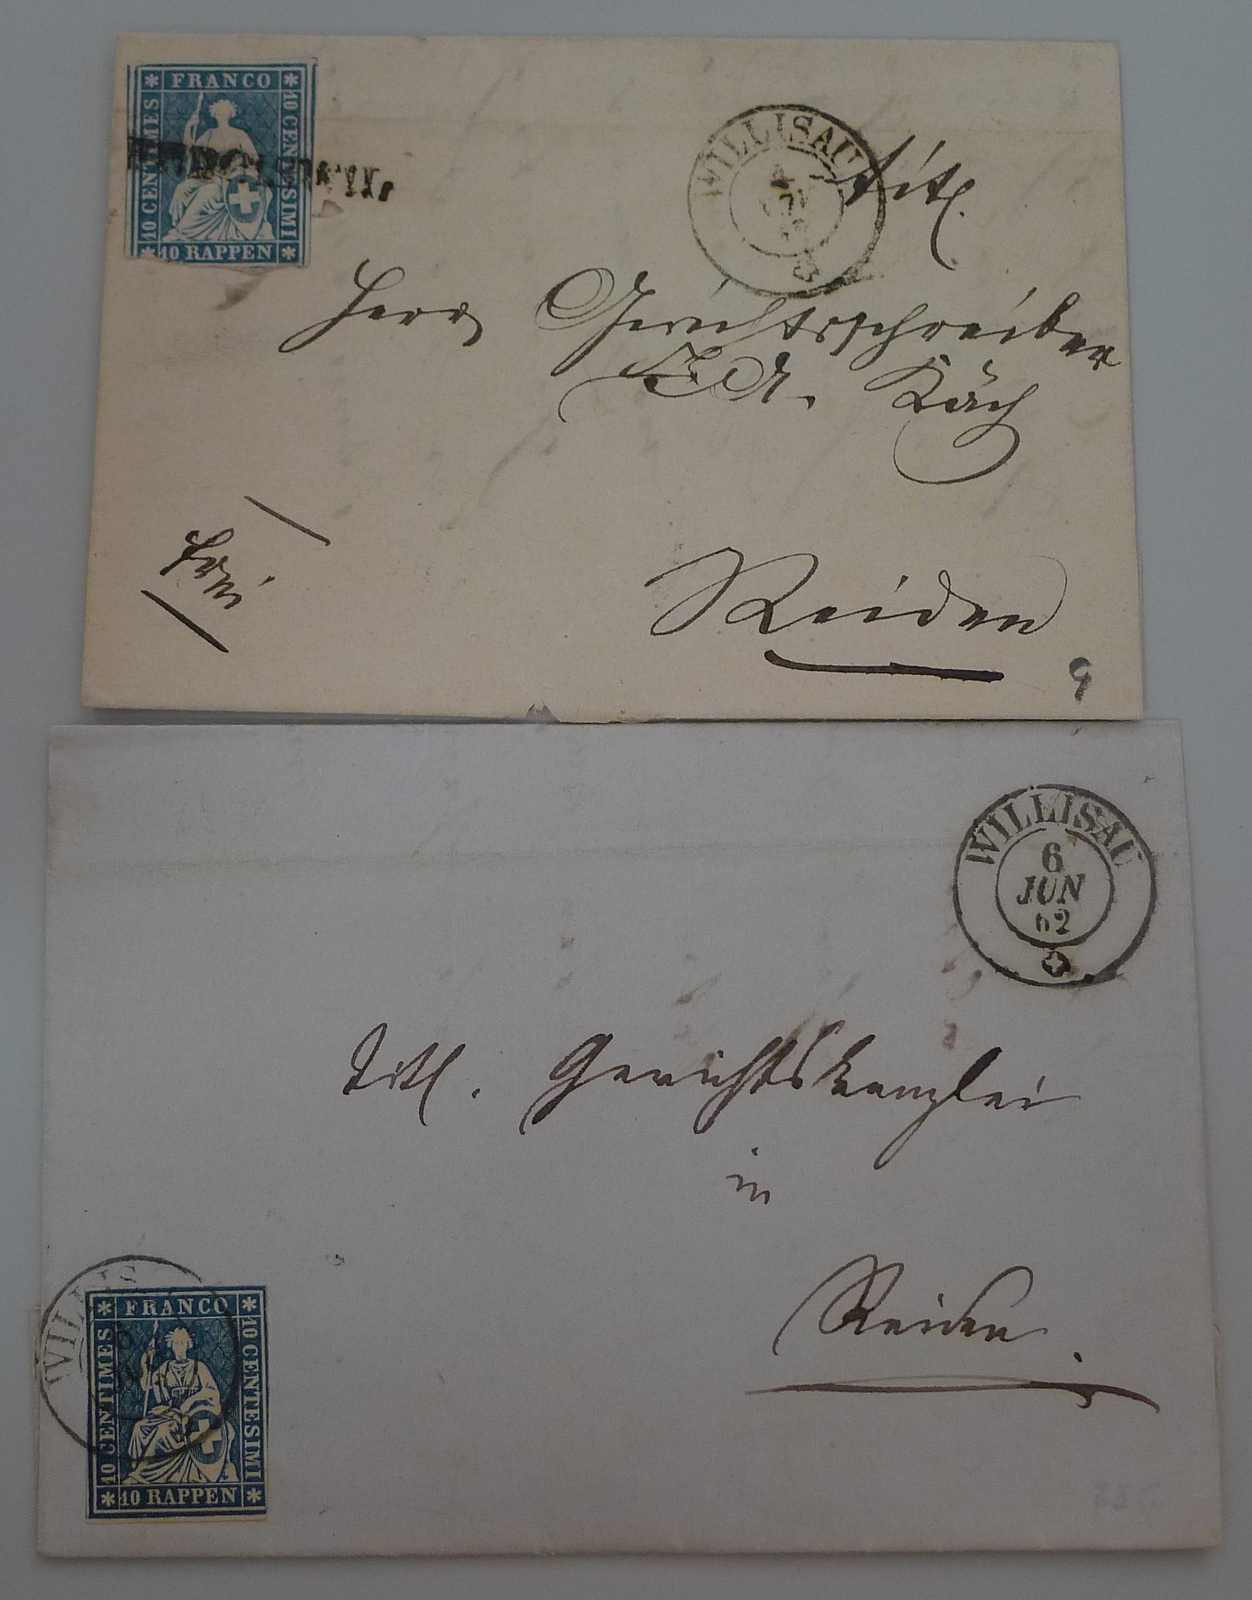 FRANCO
10 CENTIMES
10 CENTESIMI
10 RAPPEN
WILLISAU
Titl.
Herr Gerichtsschreiber
Käch
frei
Reiden
9
WILLISAU
6
JUN
62
Titl. Gerichtskanzlei
in
Reiden.
WILLIS
FRANCO
10 CENTIMES
10 CENTESIMI
10 RAPPEN